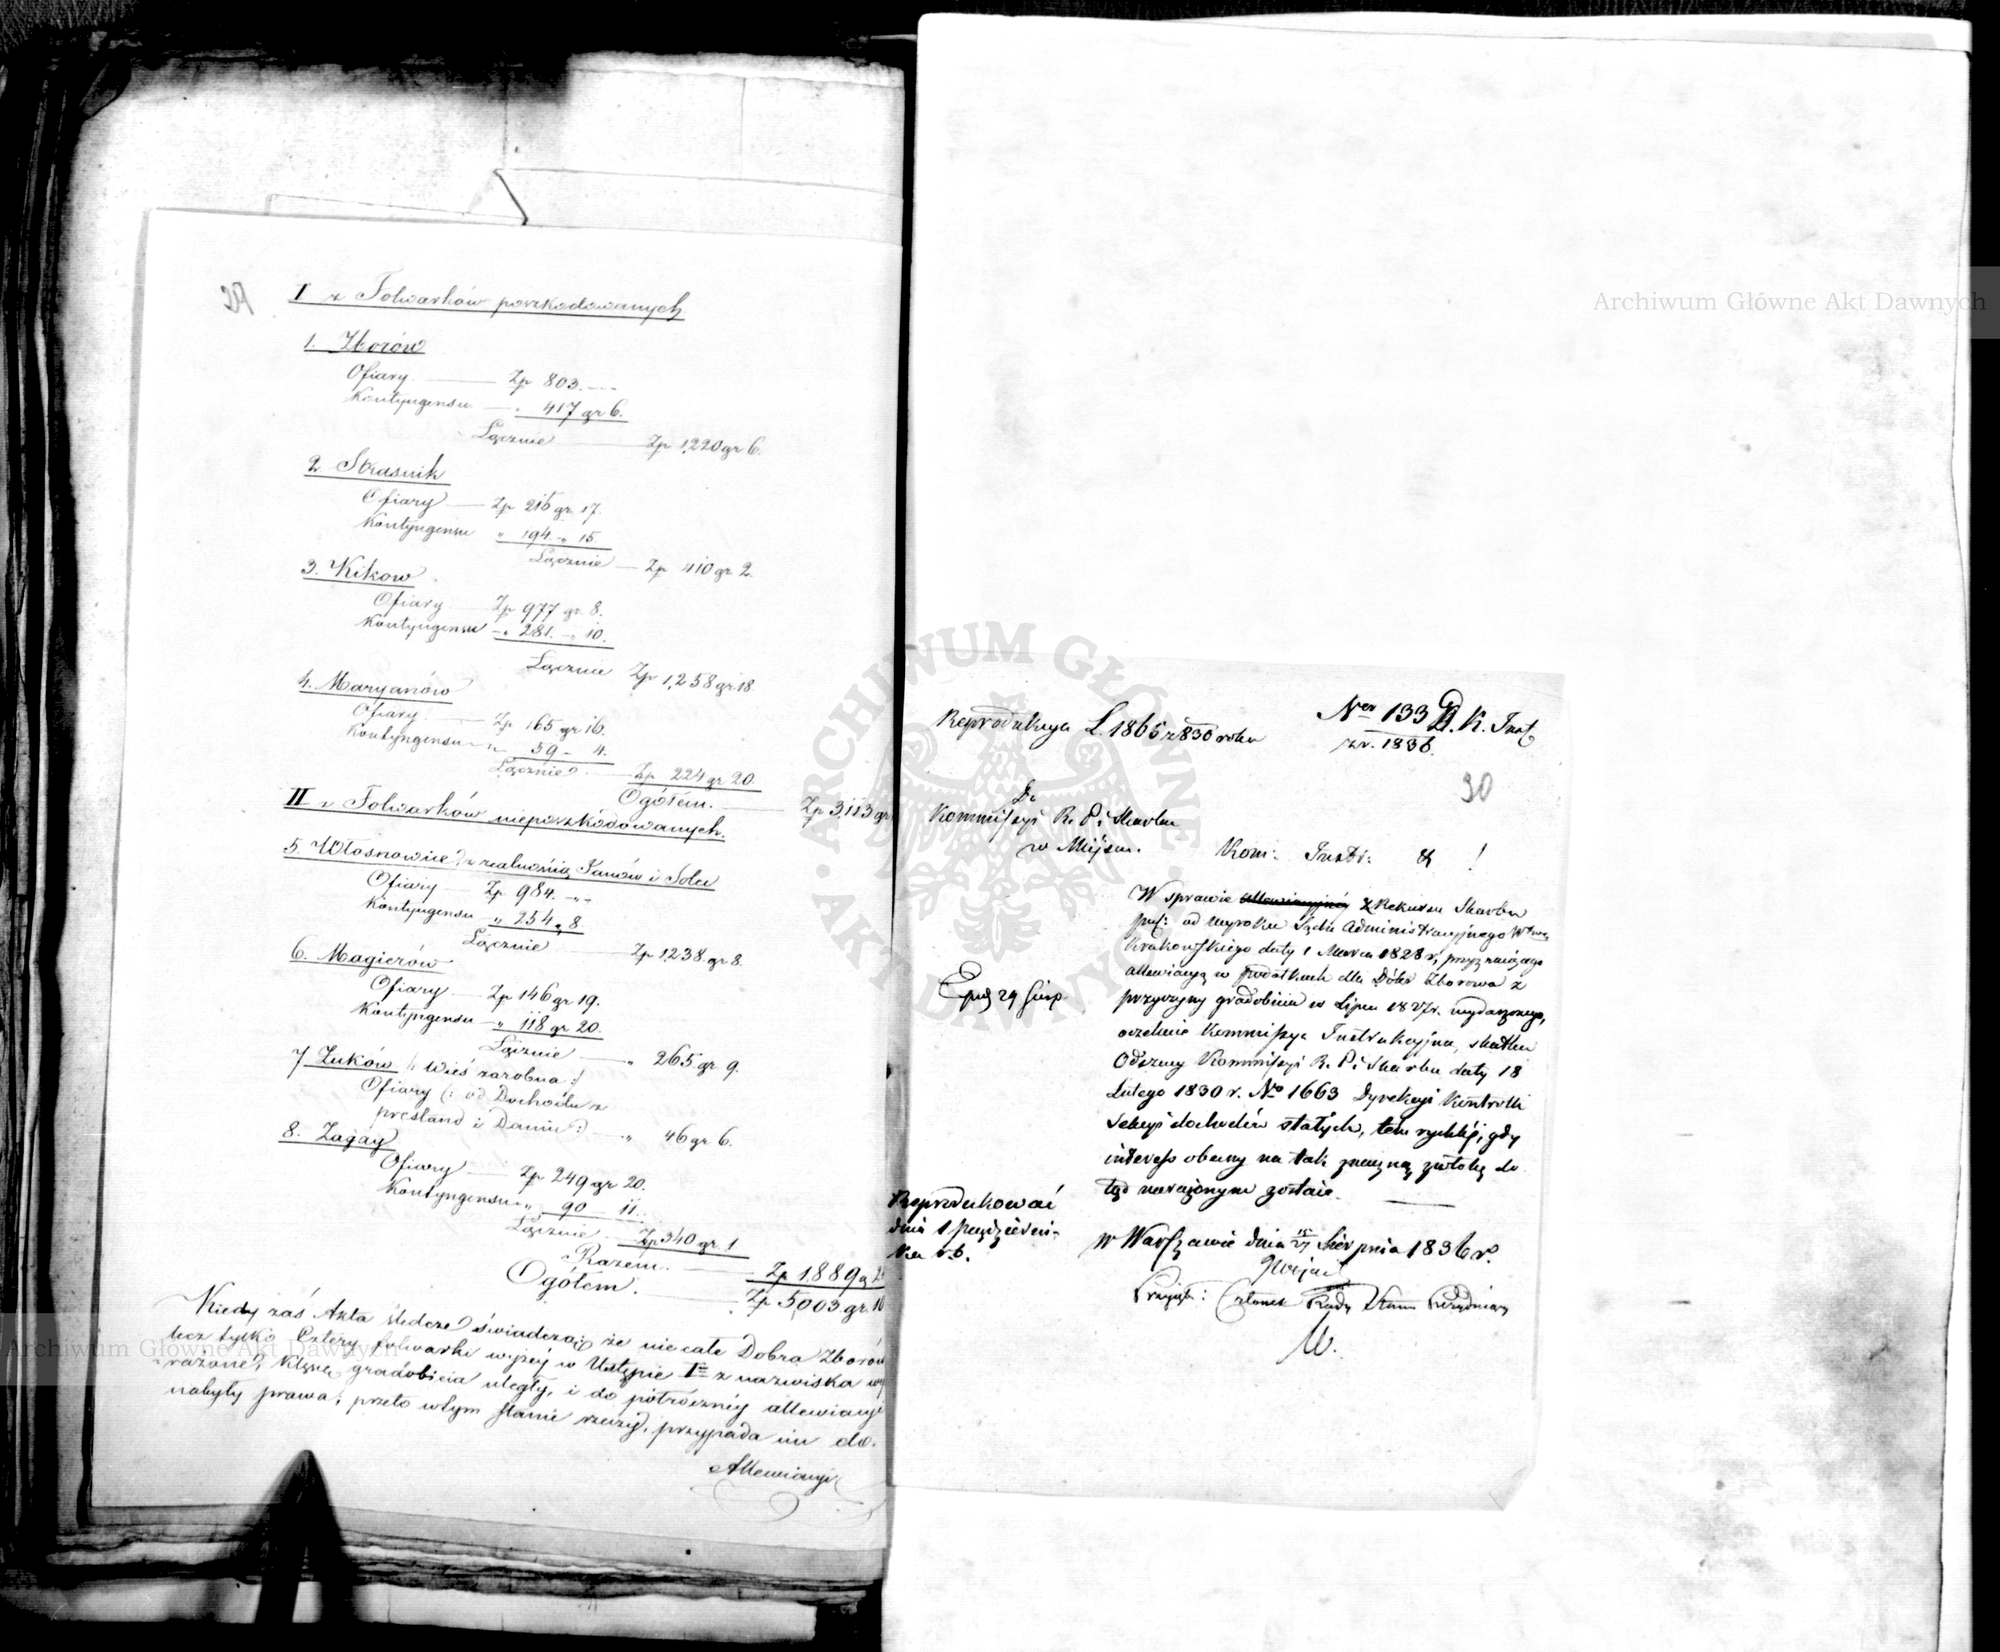 29
I z Folwarków poszkodowanych
1. Zborów
Ofiary — Zp 803. - -
Kontyngensu — „ 417 gr 6.
Łącznie — Zp 1,220 gr 6.
2 Strasnik
Ofiary — Zp 215 gr. 17.
Kontyngensu „ 194 „ 15.
Łącznie — Zp 410 gr 2.
3. Kikow
Ofiary — Zp 977 gr. 8.
Kontyngensu — „ 281. „ 10.
Łącznie Zp 1,258 gr 18.
4. Maryanów
Ofiary — Zp 165 gr 16.
Kontyngensu — „ 59 - 4.
Łącznie — Zp 224 gr 20.
Ogółem. — Zp 3,113 gr
II z Folwarków nieposzkodowanych.
5. Włosnowice z Janów i Solec
Ofiary — Zp 984. - -
Kontyngensu — „ 254 „ 8.
Łącznie — Zp 1,238 gr 8.
6. Magierów
Ofiary — Zp 146 gr 19.
Kontyngensu — „ 118 gr 20.
Łącznie — „ 265 gr 9.
7 Żuków /: Wieś zarobna :/
Ofiary (: od Dochodu z
prestand i Danin :) — „ 46 gr 6.
8. Zagay
Ofiary — Zp 249 gr 20.
Kontyngensu „ 90 - 11.
Łącznie — Zp 340 gr 1
Razem. — Zp 1,889 g 24
Ogółem. — Zp 5,003 gr 10
Kiedy zaś Akta śledcze świadczą że nie całe Dobra Zborów
lecz tylko Cztery folwarki wyżej w Ustępie I z nazwiska wy
rażone, klęsce gradobicia uległy, i do półrocznéj allewiacyi
nabyły prawa; przeto w tym stanie rzeczy, przypada im do.
Allewiacyi
Reprodukcya L. 1865 z 830 roku
Ner 133 D. K. Inst
z r. 1836.
30
Do
Kommissyi R. P. i Skarbu
w Miejscu.
Kom: Instr: &!
W sprawie allewiacyjnéj z Rekursu Skarbu
pub: od wyroku Sądu Administracyjnego Wtwa
Krakowskiego daty 1 Marca 1828 r, przyznaiącego
allewiacyą w podatkach dla Dóbr Zborowa z
przyczyny gradobicia w Lipcu 1827 r. wydarzonego,
oczekuie Kommissya Instrukcyjna, skutku
Odezwy Kommissyi R. P. i Skarbu daty 18
Lutego 1830 r. No 1663 Dyrekcyi Kontrolli
Sekcyi dochodów stałych, tem rychléj, gdy
interess obecny na tak znaczną zwłokę do
tąd narażonym zostaie.
Exp 29 Sierp
Reprodukować
dnia 1 Październi-
ka r. b.
w Warszawie dnia 15/27 Sierpnia 1836 r.
Członek Rady Stanu Prezyduiący
ARCHIWUM GŁÓWNE AKT DAWNYCH
Archiwum Główne Akt Dawnych
Archiwum Główne Akt Dawnych